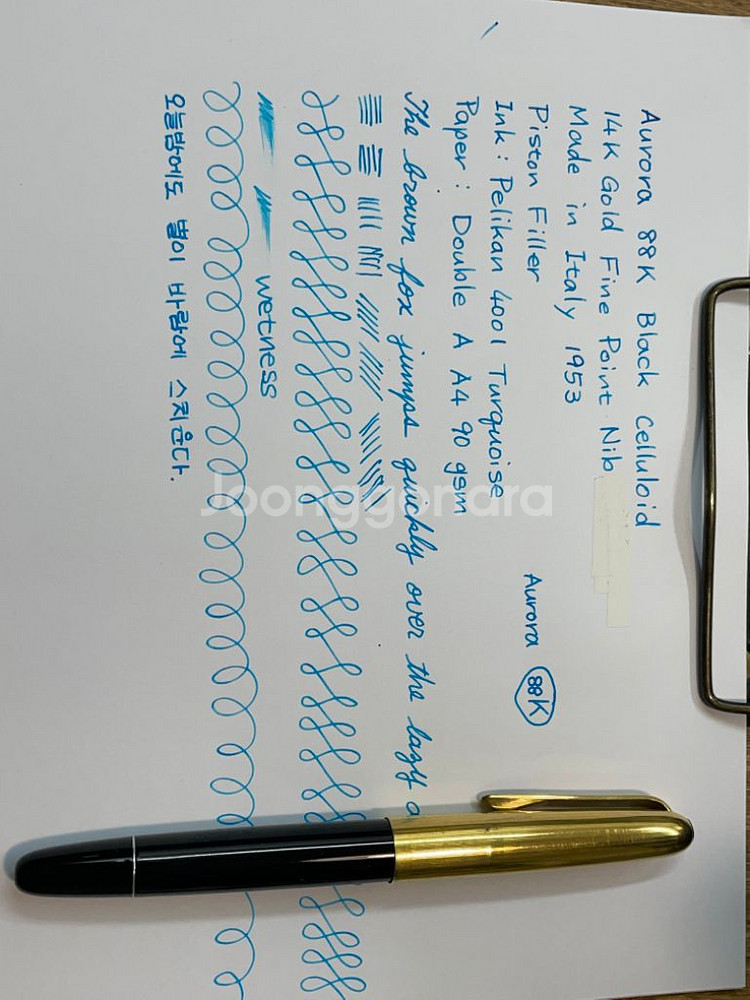 Aurora 88K Black Celluloid
14K Gold Fine Point Nib
Made in Italy 1953
Piston Filler
Ink : Pelikan 4001 Turquoise
Paper : Double A A4 90 gsm
Aurora 88K
The brown fox jumps quickly over the lazy
wetness
오늘밤에도 별이 바람에 스치운다.
Joonggonara